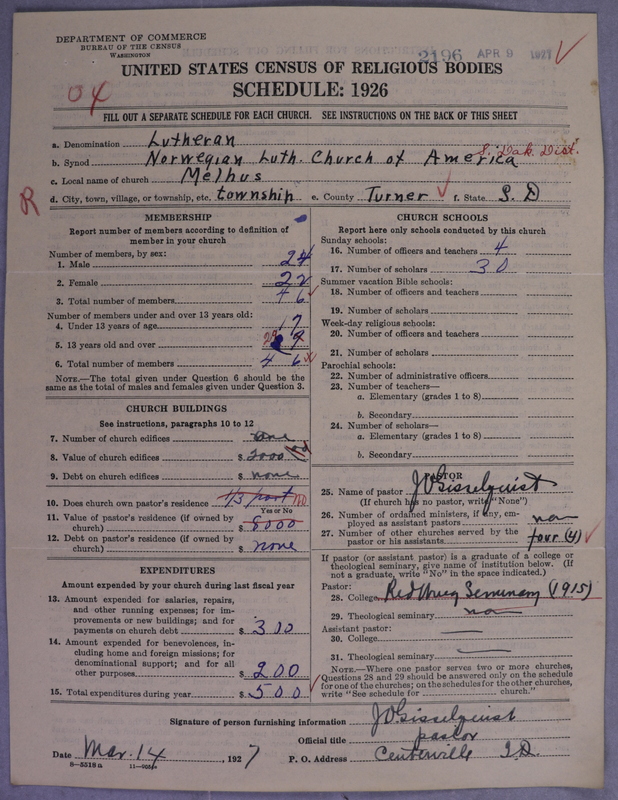 DEPARTMENT OF COMMERCE
BUREAU OF THE CENSUS
WASHINGTON
2196 APR 9 1927
UNITED STATES CENSUS OF RELIGIOUS BODIES
SCHEDULE: 1926
04
FILL OUT A SEPARATE SCHEDULE FOR EACH CHURCH. SEE INSTRUCTIONS ON THE BACK OF THIS SHEET
a. Denomination Lutheran
b. Synod Norwegian Luth. Church of America S. Dak. Dist.
c. Local name of church Melhus
R
d. City, town, village, or township, etc. township e. County Turner f. State S. D
MEMBERSHIP
Report number of members according to definition of
member in your church
Number of members, by sex:
1. Male 24
2. Female 22
3. Total number of members 46
Number of members under and over 13 years old:
4. Under 13 years of age 17
5. 13 years old and over 29
6. Total number of members 46
NOTE.—The total given under Question 6 should be the
same as the total of males and females given under Question 3.
CHURCH BUILDINGS
See instructions, paragraphs 10 to 12
7. Number of church edifices one
8. Value of church edifices $ 2000
9. Debt on church edifices $ none
10. Does church own pastor's residence 1/3 part no
Yes or No
11. Value of pastor's residence (if owned by
church) $ 8000
12. Debt on pastor's residence (if owned by
church) $ none
EXPENDITURES
Amount expended by your church during last fiscal year
13. Amount expended for salaries, repairs,
and other running expenses; for im-
provements or new buildings; and for
payments on church debt $ 300
14. Amount expended for benevolences, in-
cluding home and foreign missions; for
denominational support; and for all
other purposes $ 200
15. Total expenditures during year $ 500
CHURCH SCHOOLS
Report here only schools conducted by this church
Sunday schools:
16. Number of officers and teachers 4
17. Number of scholars 30
Summer vacation Bible schools:
18. Number of officers and teachers
19. Number of scholars
Week-day religious schools:
20. Number of officers and teachers
21. Number of scholars
Parochial schools:
22. Number of administrative officers
23. Number of teachers—
a. Elementary (grades 1 to 8)
b. Secondary
24. Number of scholars—
a. Elementary (grades 1 to 8)
b. Secondary
PASTOR
25. Name of pastor J O Gisselquist
(If church has no pastor, write "None")
26. Number of ordained ministers, if any, em-
ployed as assistant pastors non
27. Number of other churches served by the
pastor or his assistants four (4)
If pastor (or assistant pastor) is a graduate of a college or
theological seminary, give name of institution below. (If
not a graduate, write "No" in the space indicated.)
Pastor:
28. College Red Wing Seminary (1915)
29. Theological seminary non
Assistant pastor:
30. College
31. Theological seminary
NOTE.—Where one pastor serves two or more churches,
Questions 28 and 29 should be answered only on the schedule
for one of the churches; on the schedules for the other churches,
write "See schedule for church."
Signature of person furnishing information J O Gisselquist
Official title pastor
Date Mar. 14, 1927 P. O. Address Centerville S.D.
8—5518a 11—9051